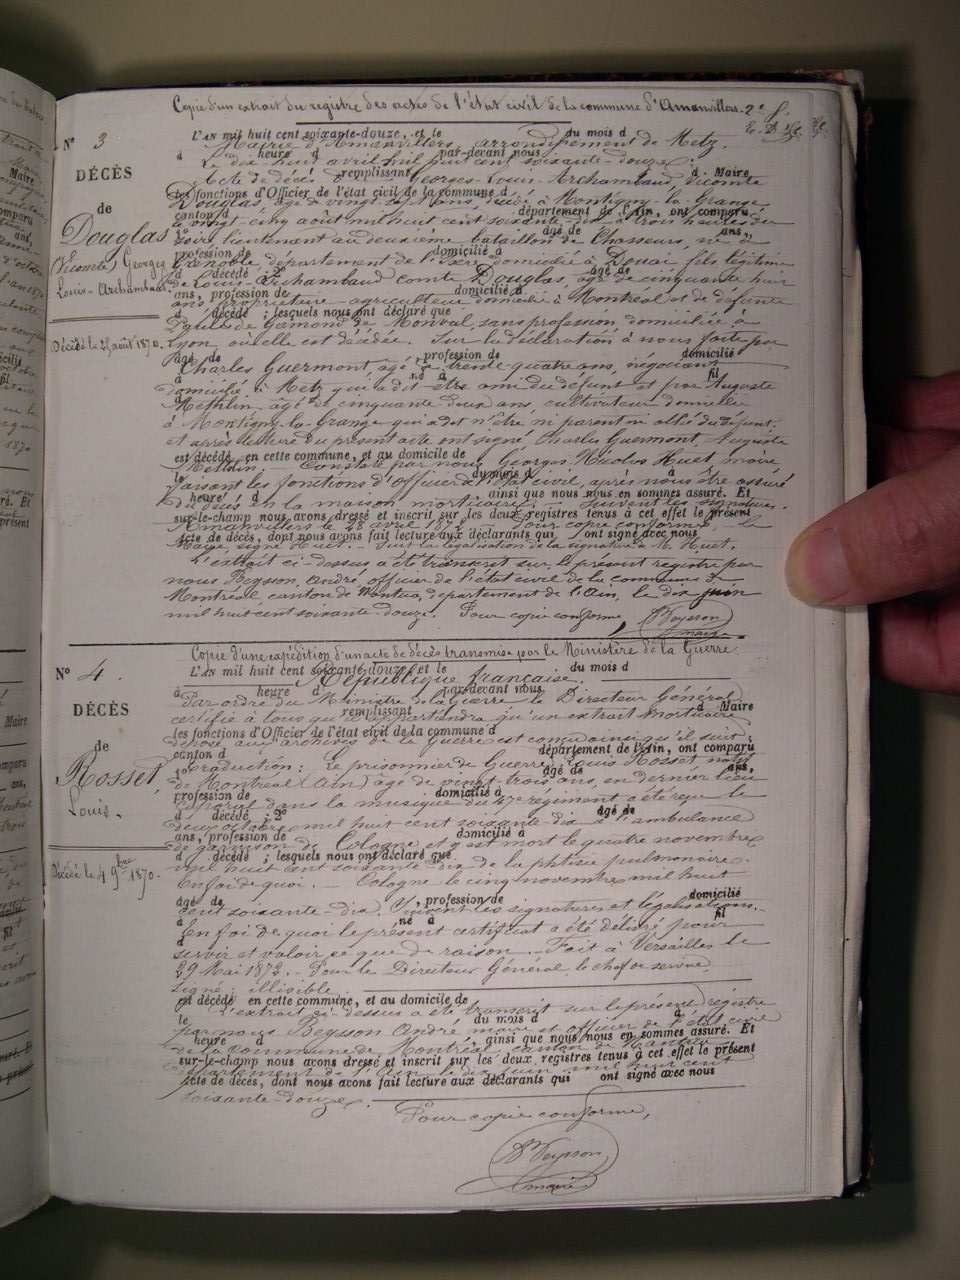 Copie d'un extrait du registre des actes de l'état civil de la commune d'Amanvillers. 2e f.
N° 3
DÉCÈS
de
Douglas
Vicomte Georges
Louis-Archambaud
Décédé le 25 août 1870.
L'AN mil huit cent soixante-douze, et le du mois d
Mairie d'Amanvillers, arrondissement de Metz.
à heure d par-devant nous
L'an dix huit avril mil huit cent soixante-douze.
remplissant d Maire
Acte de décès de Georges-Louis-Archambaud Vicomte
les fonctions d'Officier de l'état civil de la commune d
Douglas, âgé de vingt-sept ans, décédé à Montigny-la-Grange
canton d département de l'Ain, ont comparu
le vingt-cinq août mil huit cent soixante-dix à trois heures du
1° âgé de ans,
soir, lieutenant au deuxième bataillon de Chasseurs, né à
profession de domicilié à
Grenoble département de l'Isère domicilié à Douai fils légitime
d décédé ; 2° âgé de
de Louis-Archambaud comte Douglas, âgé de cinquante huit
ans, profession de domicilié à
ans, propriétaire agriculteur domicilié à Montréal et de défunte
d décédé ; lesquels nous ont déclaré que
de Monval, sans profession, domiciliée à
Lyon où elle est décédée. Sur la déclaration à nous faite par
âgé de profession de domicilié
Charles Guermont, âgé de trente quatre ans, négociant
à né à fil
domicilié à Metz qui a dit être ami du défunt et par Auguste
d
Methlin âgé de cinquante deux ans, cultivateur domicilié
à Montigny-la-Grange qui a dit n'être ni parent ni allié du défunt.
et après lecture du présent acte ont signé Charles Guermont, Auguste
est décédé en cette commune, et au domicile de
Methlin. — Constaté par nous Georges Nicolas Huet maire
le du mois d à
faisant les fonctions d'officier de l'état civil, après nous être assuré
heure d , ainsi que nous nous en sommes assuré. Et
du décès en la maison mortuaire. Suivent les signatures.
sur-le-champ nous avons dressé et inscrit sur les deux registres tenus à cet effet le présent
Amanvillers le 28 avril 1872. Pour copie conforme, le
acte de décès, dont nous avons fait lecture aux déclarants qui ont signé avec nous
Maire, signé Huet. — Suit la légalisation de la signature de M. Huet.
L'extrait ci-dessus a été transcrit sur le présent registre par
nous Reysson, André, officier de l'état civil de la commune de
Montréal canton de Nantua, département de l'Ain, le dix juin
mil huit cent soixante-douze. Pour copie conforme
Reysson
maire
Copie d'une expédition d'un acte de décès transmise par le Ministère de la Guerre
N° 4.
DÉCÈS
de
Rosset,
Louis.
Décédé le 4 9bre 1870.
L'AN mil huit cent soixante-douze, et le du mois d
République française.
à heure d par-devant nous
Par ordre du Ministre de la Guerre le Directeur Général
remplissant d Maire
certifie à tous qu'il appartiendra qu'un extrait mortuaire
les fonctions d'Officier de l'état civil de la commune d
déposé aux archives de la Guerre est conçu ainsi qu'il suit :
canton d département de l'Ain, ont comparu
Traduction : Le prisonnier de Guerre, Louis Rosset natif
1° âgé de ans,
de Montréal (Ain) âgé de vingt-trois ans, en dernier lieu
profession de domicilié à
caporal dans la musique du 47e régiment a été reçu le
d décédé ; 2° âgé de
deux octobre mil huit cent soixante-dix à l'ambulance
ans, profession de domicilié à
de garnison de Cologne et y est mort le quatre novembre
d décédé ; lesquels nous ont déclaré que
mil huit cent soixante-dix de la phtisie pulmonaire.
En foi de quoi. — Cologne le cinq novembre mil huit
âgé de profession de domicilié
cent soixante-dix. Suivent les signatures et légalisations.
à né à fil
En foi de quoi le présent certificat a été délivré pour
d
servir et valoir ce que de raison. — Fait à Versailles le
29 Mai 1872. — Pour le Directeur Général, le chef de service,
signé : illisible.
est décédé en cette commune, et au domicile de
L'extrait ci-dessus a été transcrit sur le présent registre
le du mois d à
par nous Reysson André maire et officier de l'état civil
heure d , ainsi que nous nous en sommes assuré. Et
de la commune de Montréal canton de Nantua
sur-le-champ nous avons dressé et inscrit sur les deux registres tenus à cet effet le présent
département de l'Ain le dix juin mil huit cent
acte de décès, dont nous avons fait lecture aux déclarants qui ont signé avec nous
soixante-douze.
Pour copie conforme,
Reysson
maire